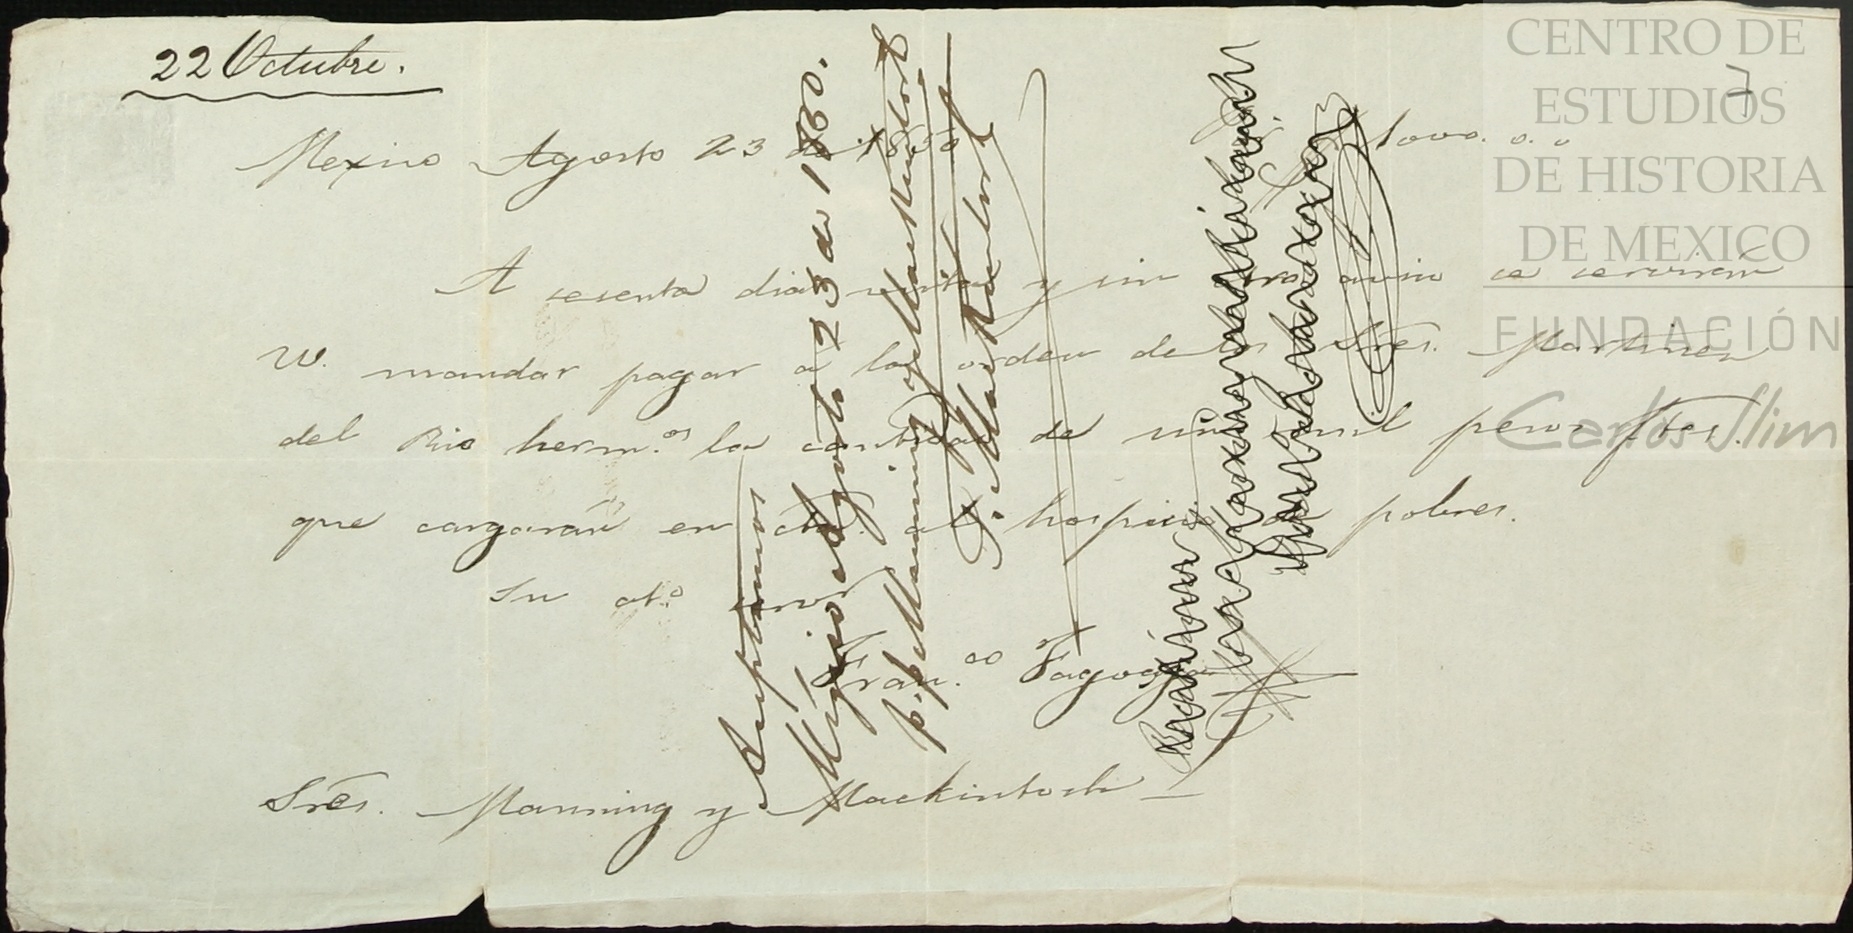 22 Octubre.
7
Mexico Agosto 23 de 1850
1000. o. o
A sesenta dias vista y sin otro aviso se serviran
W. mandar pagar a la orden de los Sres. Martinez
del Rio herm.os la cantidad de un mil pesos ftes.
que cargarán en cta. al hospicio de pobres.
Su at.o serv.r
Fran.co Fagoaga
Sres. Manning y Mackintosh
Aceptamos
Mégico Agosto 23 de 1850.
p.p. Manning y Mackintosh
Mackintosh
CENTRO DE
ESTUDIOS
DE HISTORIA
DE MEXICO
FUNDACIÓN
Carlos Slim